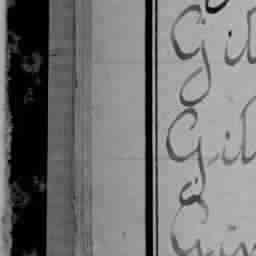 Gil
Gil
Gin